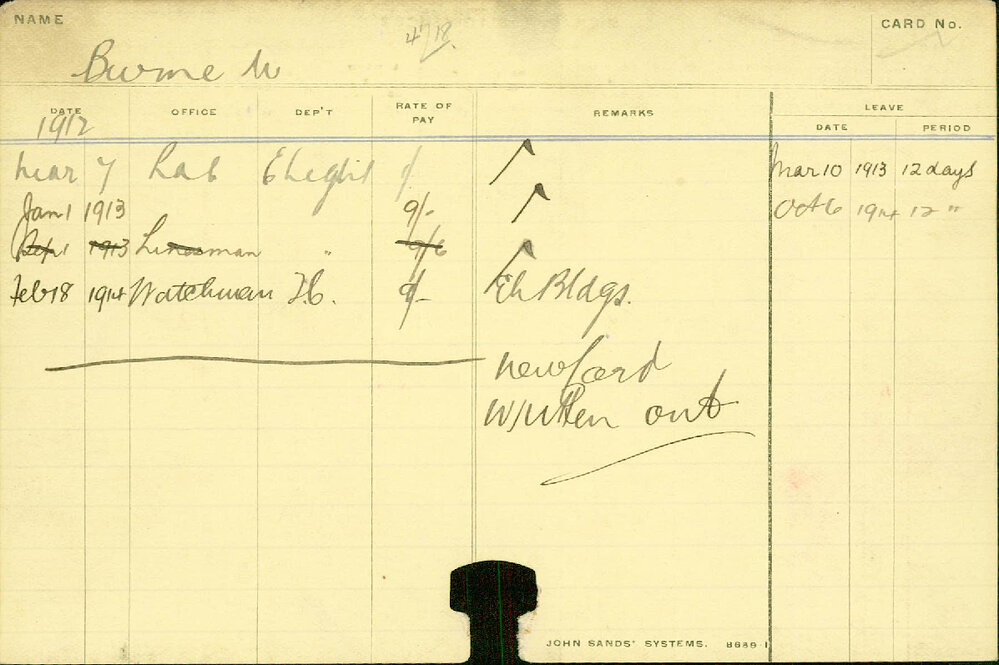 NAME
CARD No.
4/18.
Burne W
DATE OFFICE DEP'T RATE OF PAY REMARKS LEAVE
DATE PERIOD
1912
Mar 7 Lab El light Mar 10 1913 12 days
Jan 1 1913 9/- Oct 6 1914 12 "
Sept 1 1913 Linesman " 9/6
Feb 18 1914 Watchman T.C. 9/- Ch Bldgs.
New Card
Written out
JOHN SANDS' SYSTEMS. 8689 1